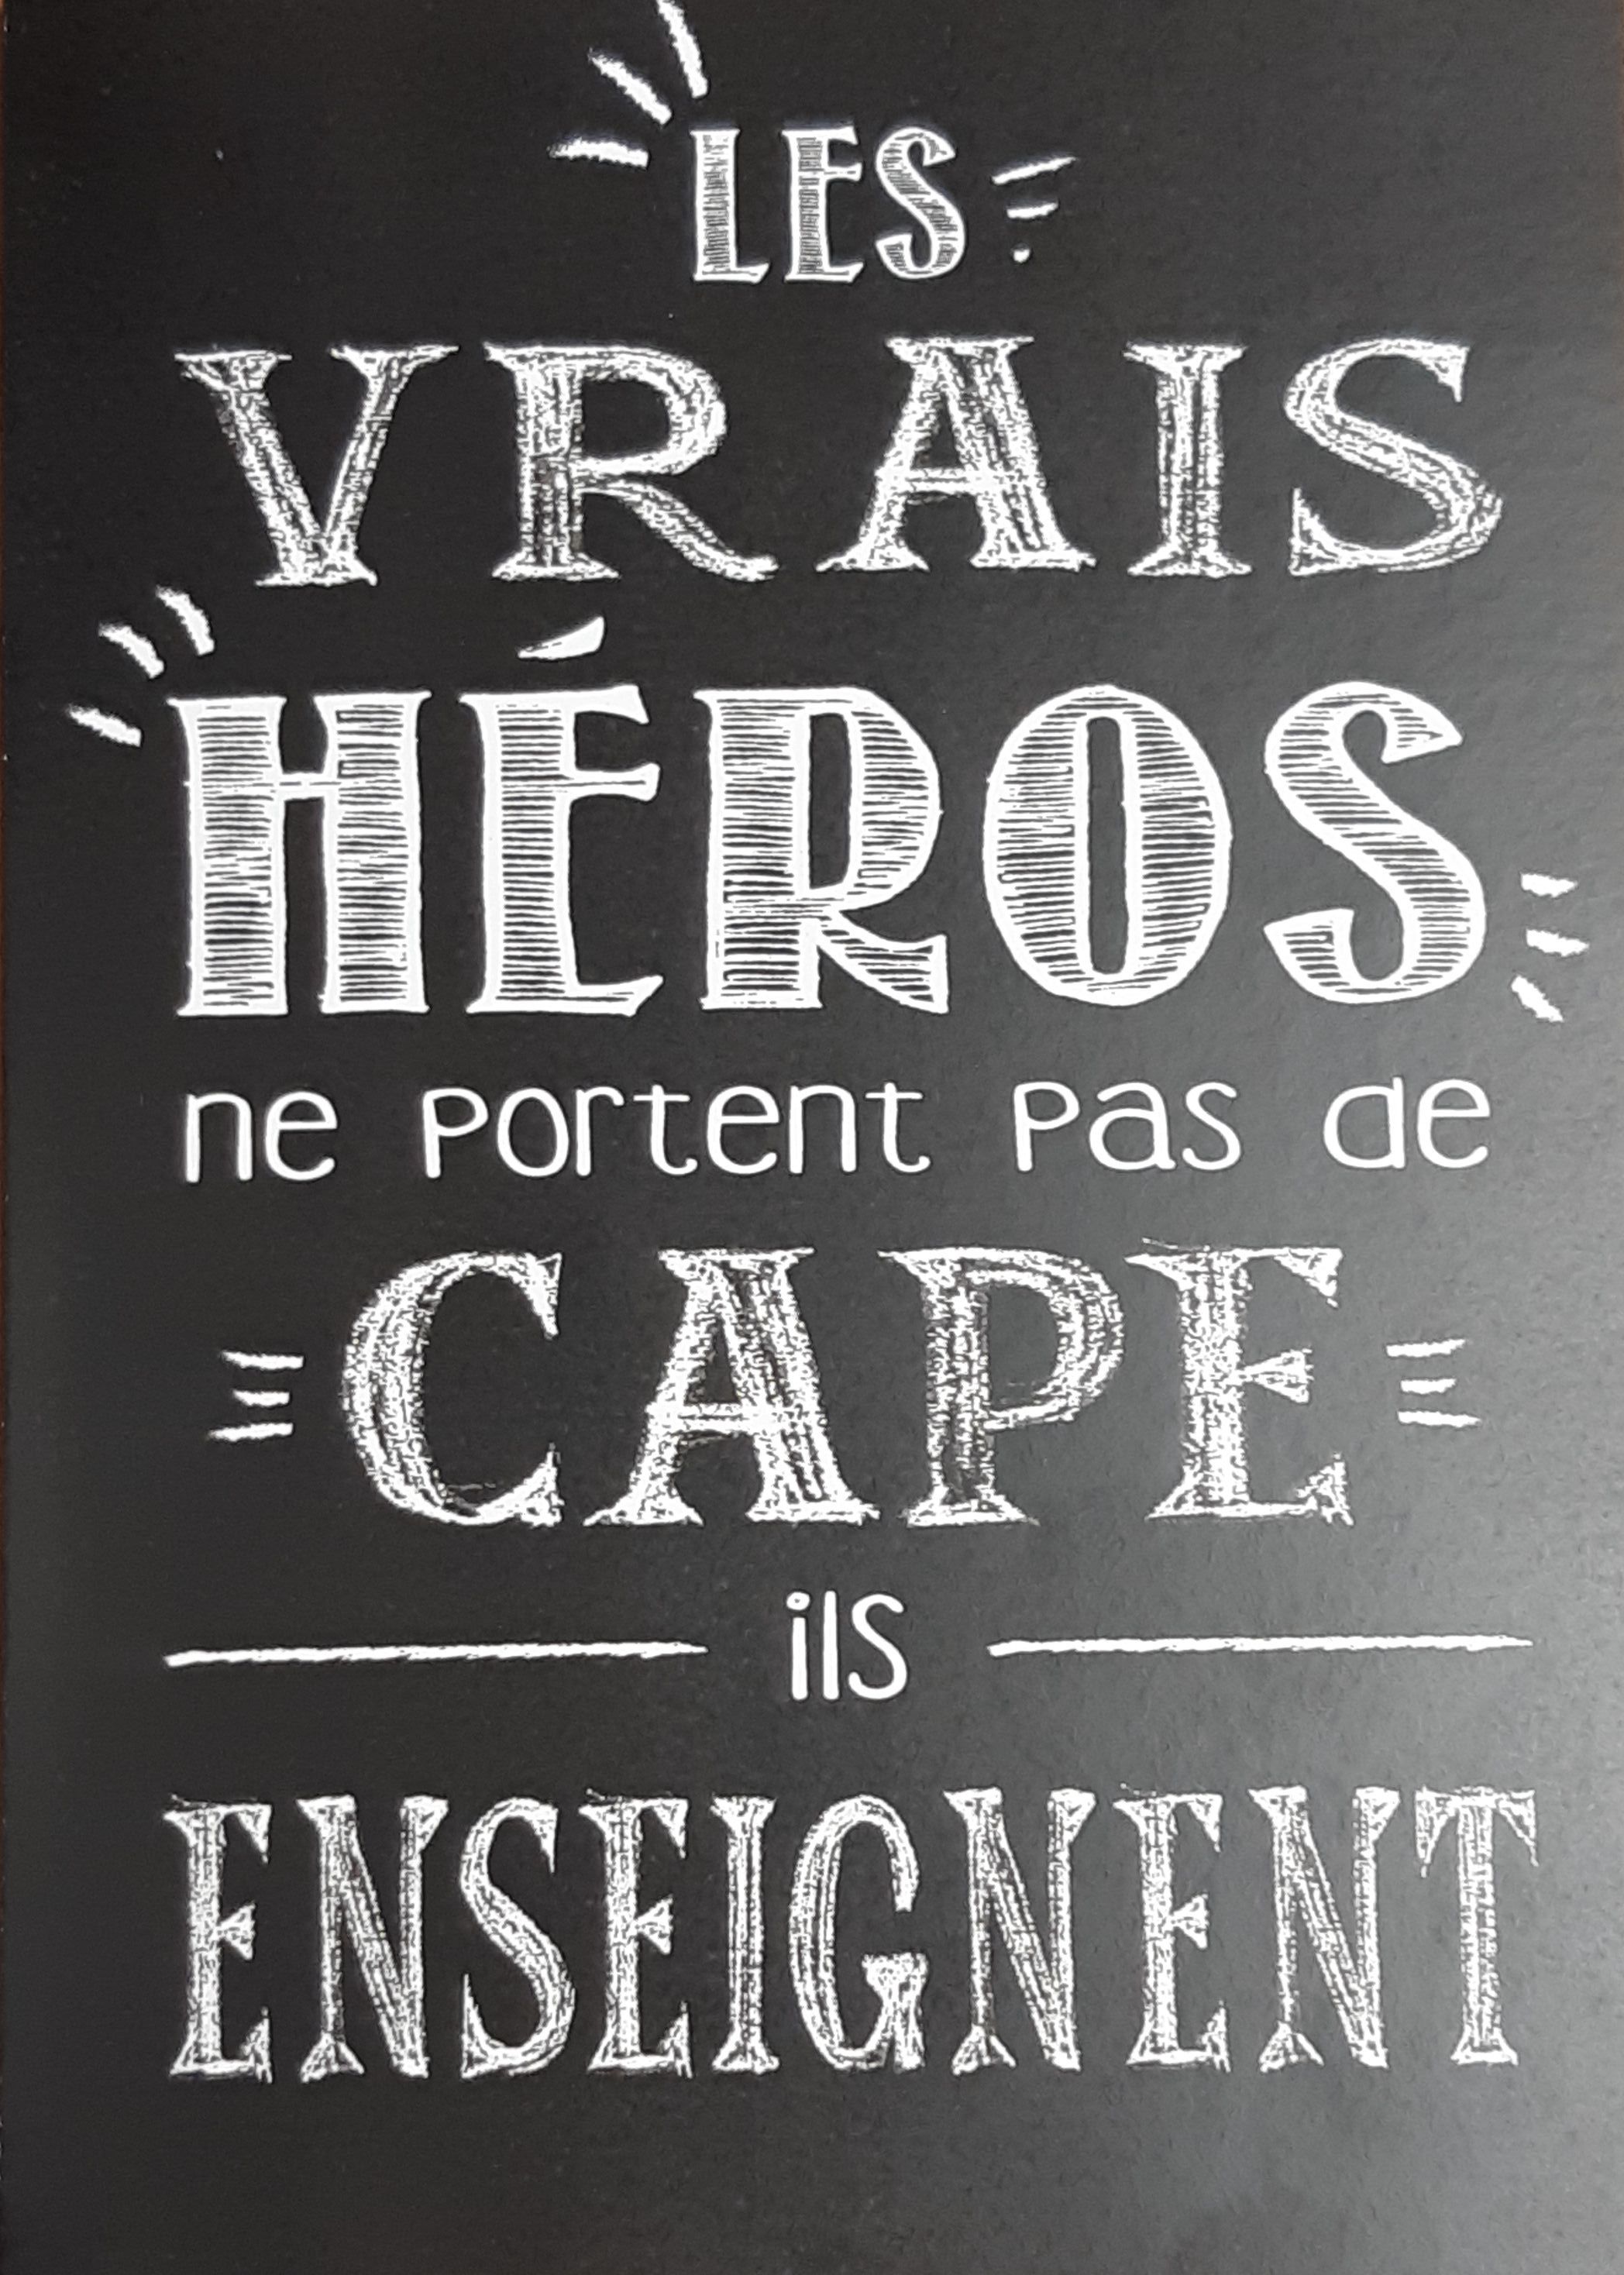 LES
VRAIS
HÉROS
ne portent pas de
CAPE
ils
ENSEIGNENT